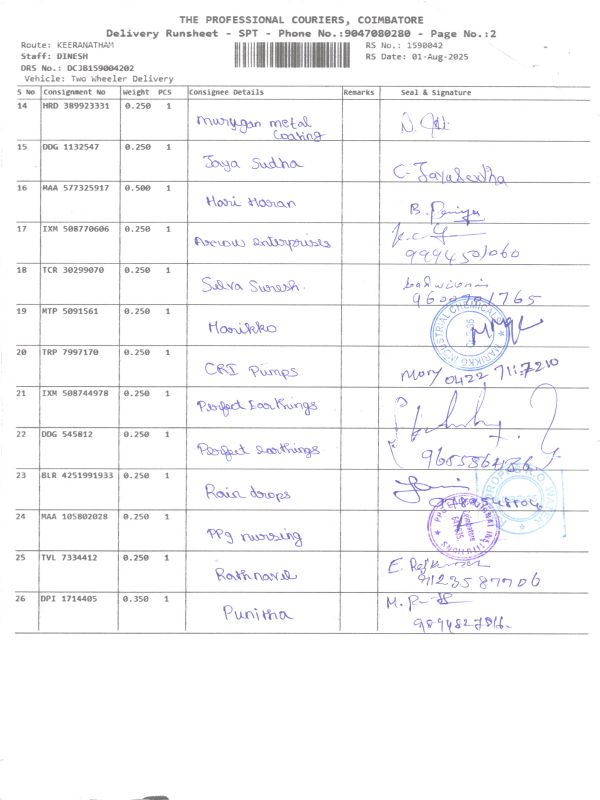 THE PROFESSIONAL COURIERS, COIMBATORE
Delivery Runsheet - SPT - Phone No.:9047080280 - Page No.:2
Route: KEERANATHAM RS No.: 1590042
Staff: DINESH RS Date: 01-Aug-2025
DRS No.: DCJB159004202
Vehicle: Two Wheeler Delivery
S No Consignment No Weight PCS Consignee Details Remarks Seal & Signature
14 HRD 389923331 0.250 1
Murugan metal
Coating
15 DDG 1132547 0.250 1
Jaya Sudha C. Jayasudha
16 MAA 577325917 0.500 1
Hari Haran B.
17 IXM 508770606 0.250 1
Arrow enterprises 9994501060
18 TCR 30299070 0.250 1
Selva Suresh.
19 MTP 5091561 0.250 1
Marikko
MARIKKO INDUSTRIAL CHEMICALS
20 TRP 7997170 0.250 1
CRI Pumps Mary 0422 7117210
21 IXM 508744978 0.250 1
Perfect Earthings
22 DDG 545812 0.250 1
Perfect earthings
23 BLR 4251991933 0.250 1
Rain drops
24 MAA 105802028 0.250 1
PPg nursing
25 TVL 7334412 0.250 1
Rathnavel E.
91235 87706
26 DPI 1714405 0.350 1
Punitha M.